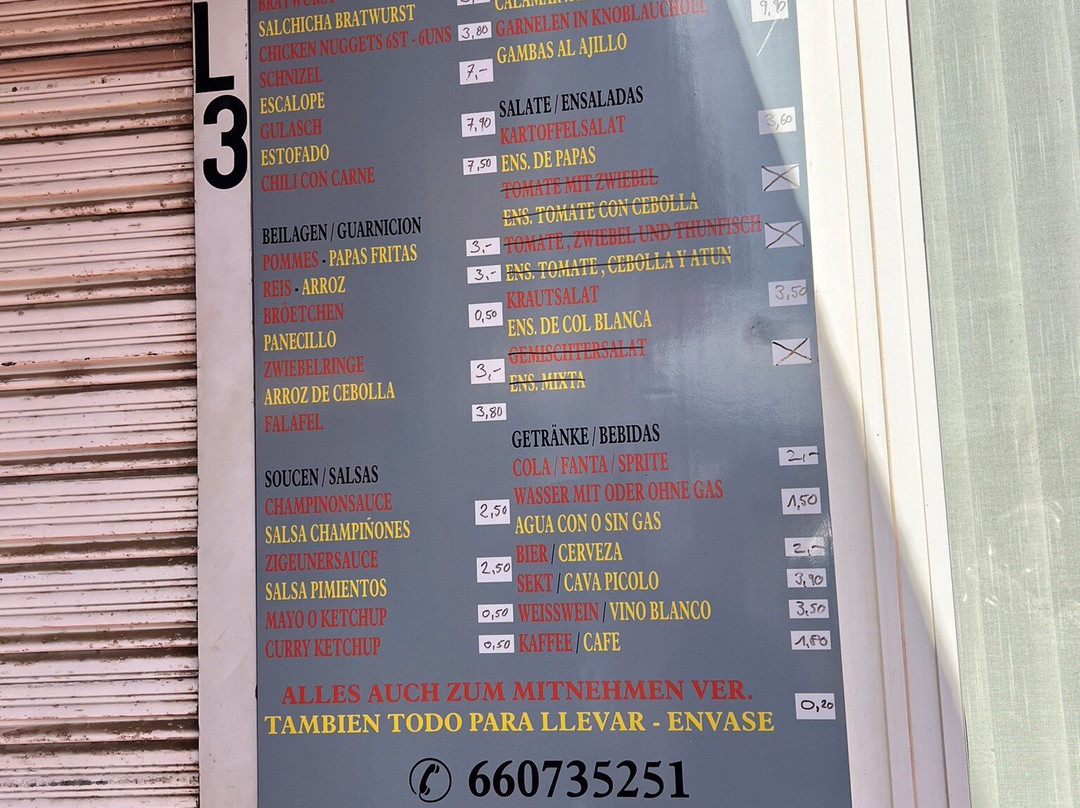 L
3
BRATWURST
SALCHICHA BRATWURST
CHICKEN NUGGETS 6ST - 6UNS 3,80
SCHNIZEL 7,-
ESCALOPE
GULASCH 7,90
ESTOFADO
CHILI CON CARNE 7,50
BEILAGEN / GUARNICION
POMMES - PAPAS FRITAS 3,-
REIS - ARROZ 3,-
BRÖETCHEN 0,50
PANECILLO
ZWIEBELRINGE 3,-
ARROZ DE CEBOLLA
FALAFEL 3,80
SOUCEN / SALSAS
CHAMPINONSAUCE 2,50
SALSA CHAMPIÑONES
ZIGEUNERSAUCE 2,50
SALSA PIMIENTOS
MAYO O KETCHUP 0,50
CURRY KETCHUP 0,50
GARNELEN IN KNOBLAUCHOEL 9,90
GAMBAS AL AJILLO
SALATE / ENSALADAS
KARTOFFELSALAT 3,60
ENS. DE PAPAS
TOMATE MIT ZWIEBEL
ENS. TOMATE CON CEBOLLA
TOMATE, ZWIEBEL UND THUNFISCH
ENS. TOMATE, CEBOLLA Y ATUN
KRAUTSALAT 3,50
ENS. DE COL BLANCA
GEMISCHTERSALAT
ENS. MIXTA
GETRÄNKE / BEBIDAS
COLA / FANTA / SPRITE 2,-
WASSER MIT ODER OHNE GAS 1,50
AGUA CON O SIN GAS
BIER / CERVEZA 2,-
SEKT / CAVA PICOLO 3,90
WEISSWEIN / VINO BLANCO 3,50
KAFFEE / CAFE 1,80
ALLES AUCH ZUM MITNEHMEN VER. 0,20
TAMBIEN TODO PARA LLEVAR - ENVASE
660735251